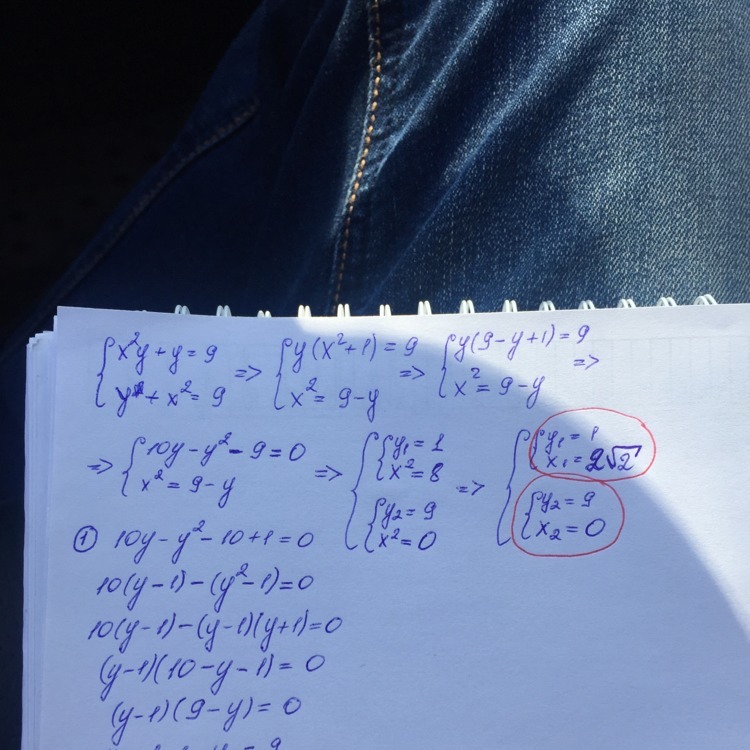 {x²y + y = 9 {y + x² = 9 => {y(x²+1) = 9 {x² = 9 - y => {y(9-y+1) = 9 {x² = 9 - y =>
=> {10y - y² - 9 = 0 {x² = 9 - y => {{y₁ = 1 {x² = 8 {{y₂ = 9 {x² = 0 => {{y₁ = 1 {x₁ = 2√2 {{y₂ = 9 {x₂ = 0
① 10y - y² - 10 + 1 = 0
10(y-1) - (y²-1) = 0
10(y-1) - (y-1)(y+1) = 0
(y-1)(10-y-1) = 0
(y-1)(9-y) = 0